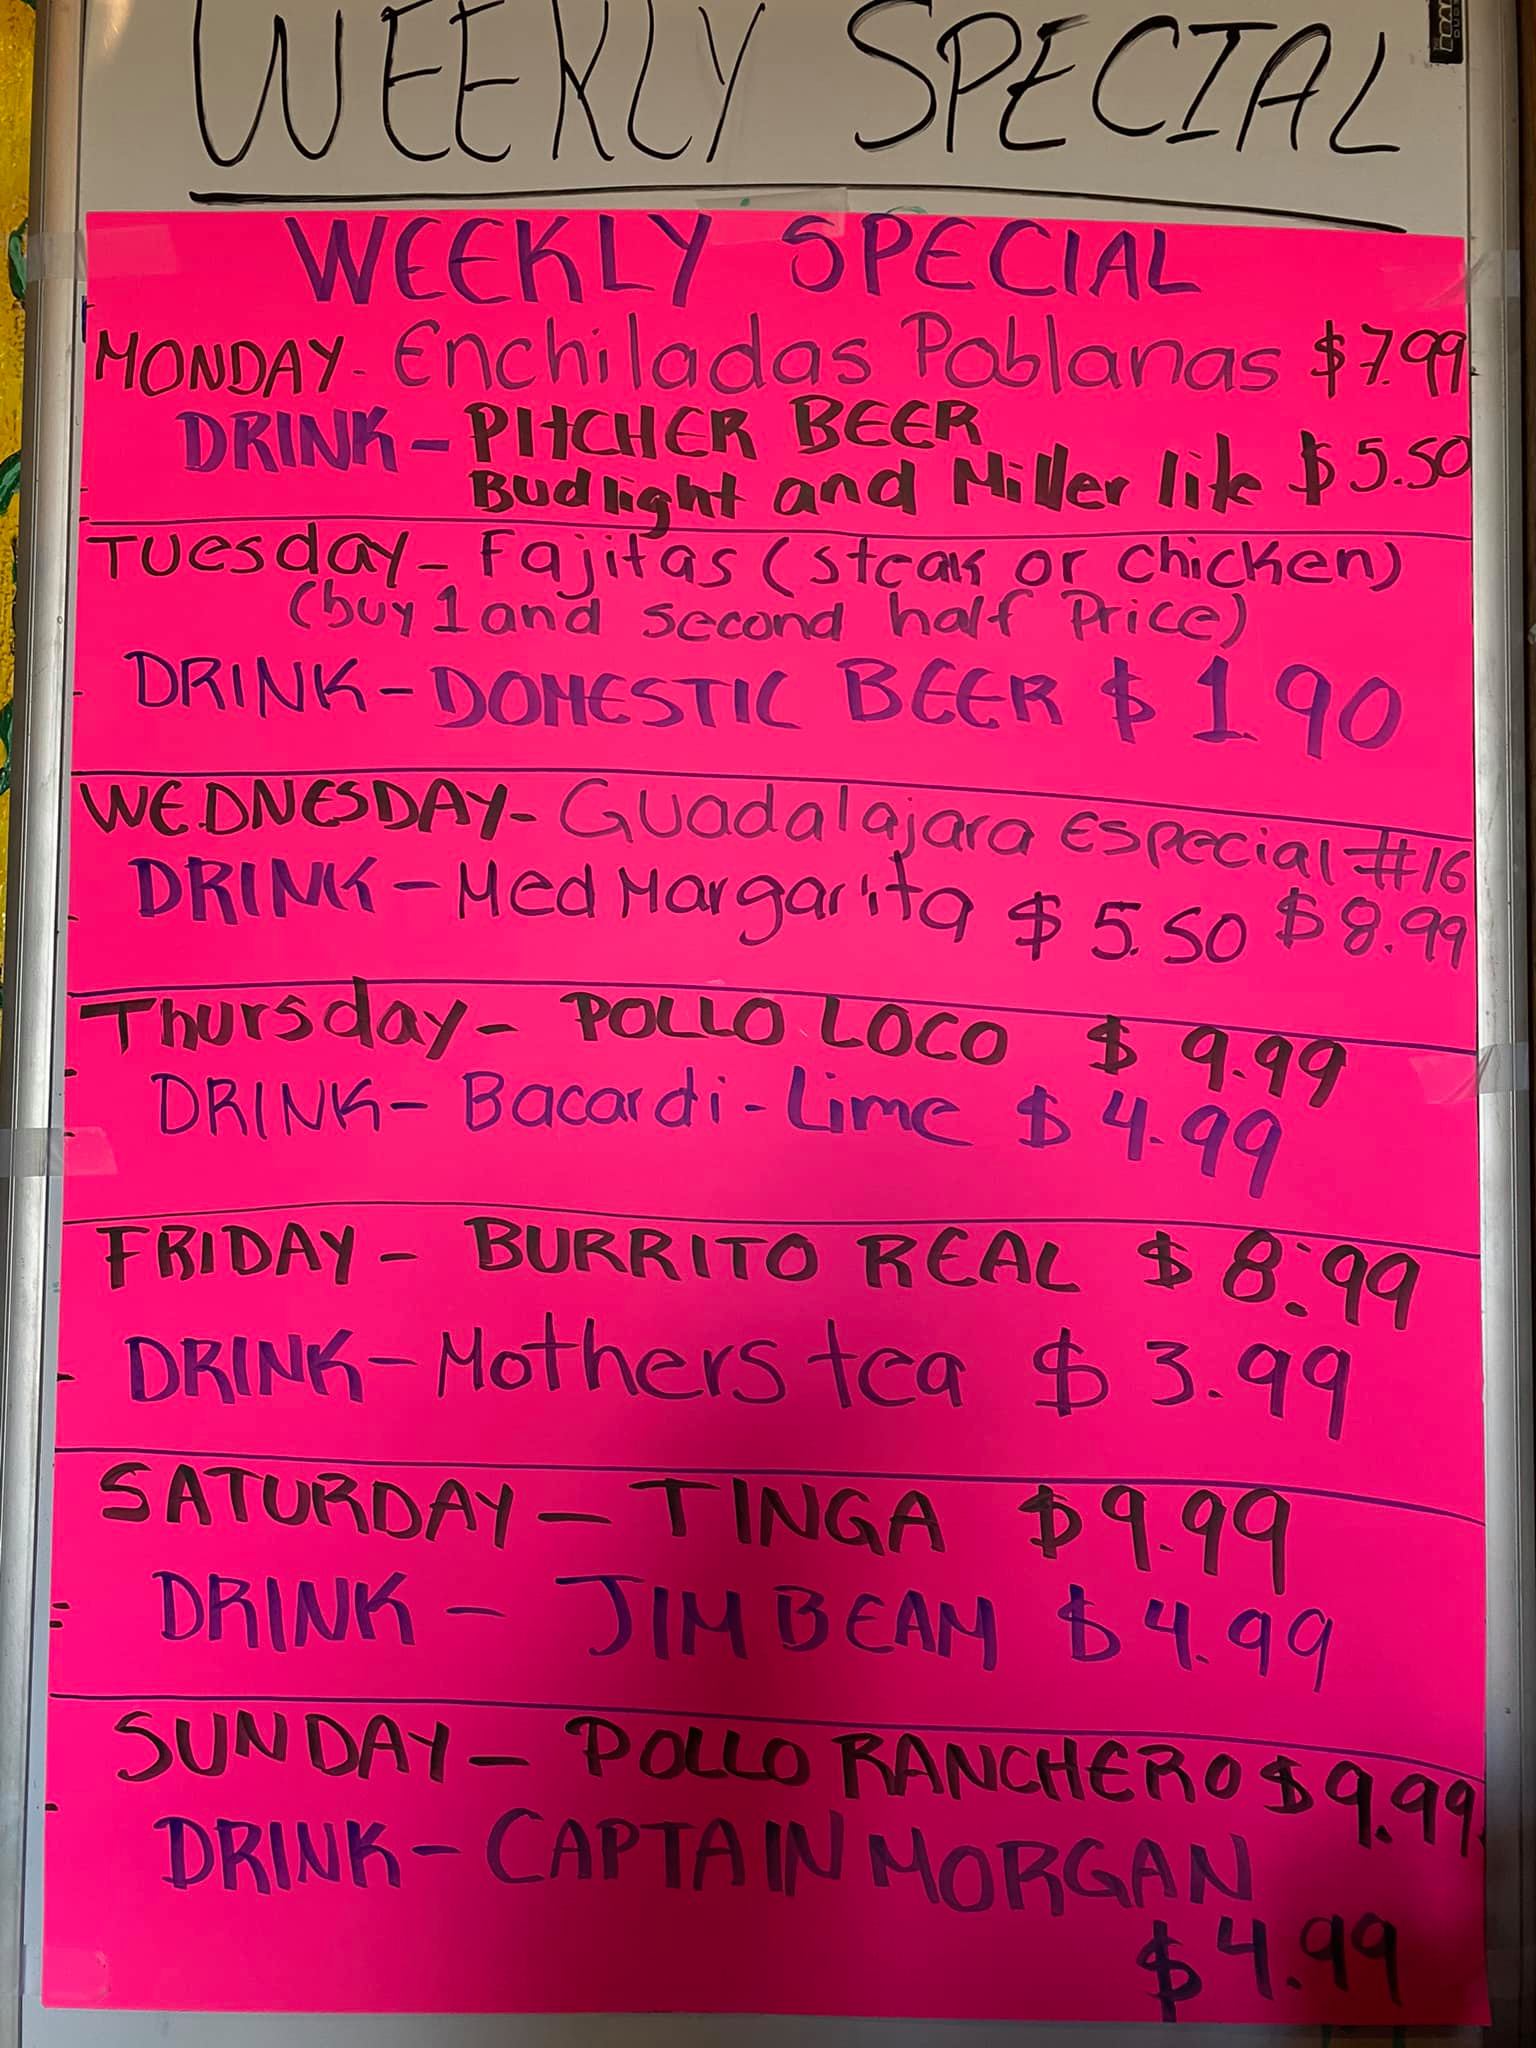 WEEKLY SPECIAL
WEEKLY SPECIAL
MONDAY- Enchiladas Poblanas $7.99
DRINK - PITCHER BEER
Budlight and Miller lite $5.50
Tuesday - Fajitas (steak or chicken)
(buy 1 and second half Price)
DRINK - DOMESTIC BEER $1.90
WEDNESDAY- Guadalajara Especial #16
DRINK - Med Margarita $5.50 $8.99
Thursday - POLLO LOCO $9.99
DRINK - Bacardi - Lime $4.99
FRIDAY - BURRITO REAL $8.99
DRINK - Mothers tea $3.99
SATURDAY - TINGA $9.99
DRINK - JIM BEAM $4.99
SUNDAY - POLLO RANCHERO $9.99
DRINK - CAPTAIN MORGAN
$4.99